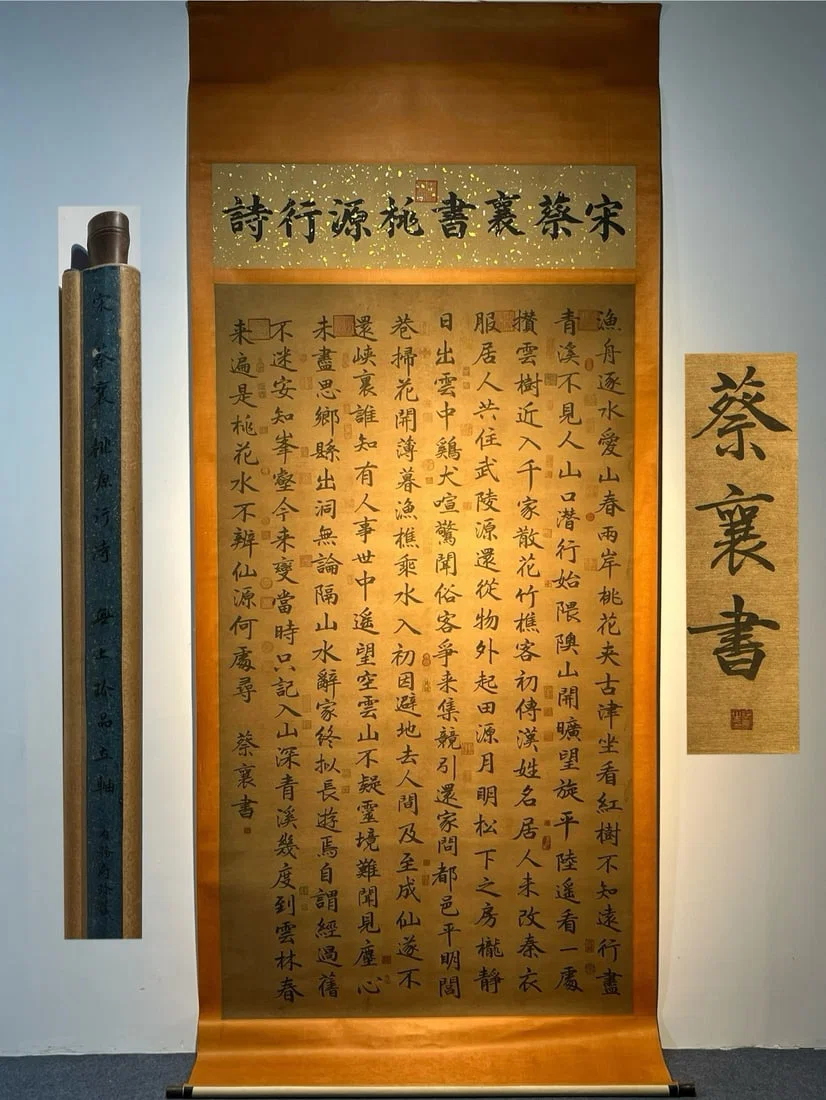 宋蔡襄書桃源行詩
漁舟逐水愛山春兩岸桃花夹古津坐看紅樹不知遠行盡
青溪不見人山口潛行始隈隩山開曠望旋平陸遥看一處
攢雲樹近入千家散花竹樵客初傳漢姓名居人未改秦衣
服居人共住武陵源還從物外起田源月明松下之房櫳靜
日出雲中鷄犬喧驚聞俗客爭来集競引還家問都邑平明閭
巷掃花開薄暮漁樵乘水入初因避地去人間及至成仙遂不
還峡襄誰知有人事世中遥望空雲山不疑靈境難聞見塵心
未盡思鄉縣出洞無論隔山水辭家終拟長遊焉自謂經過舊
不迷安知峯壑今来變當時只記入山深青溪幾度到雲林春
来遍是桃花水不辨仙源何處尋 蔡襄書
蔡襄書
宋 蔡襄 桃源行诗 無上珍品立軸